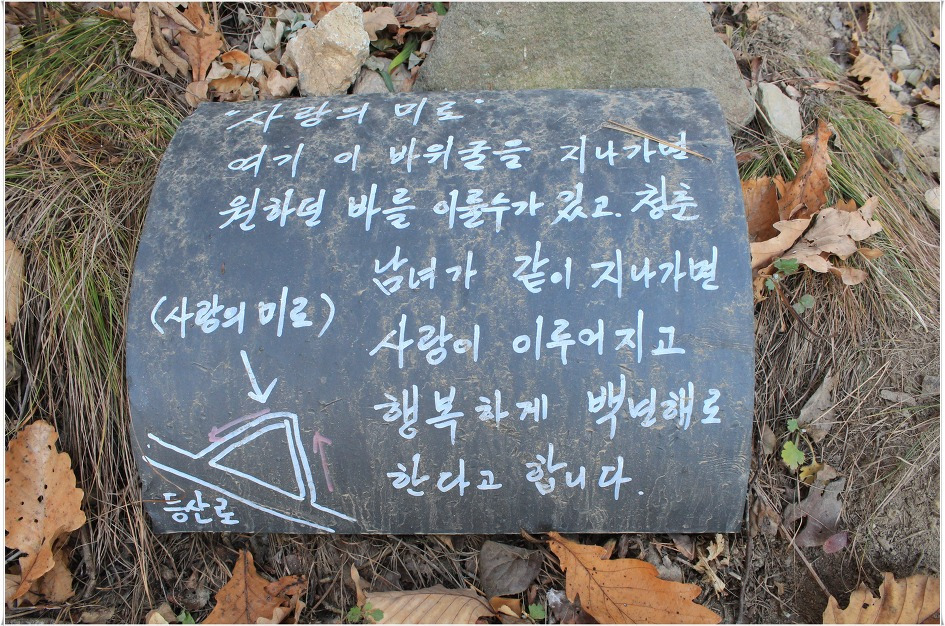 "사랑의 미로"
여기 이 바위굴을 지나가면
원하던 바를 이룰수가 있고. 청춘
남녀가 같이 지나가면
사랑이 이루어지고
행복하게 백년해로
한다고 합니다.
(사랑의 미로)
등산로